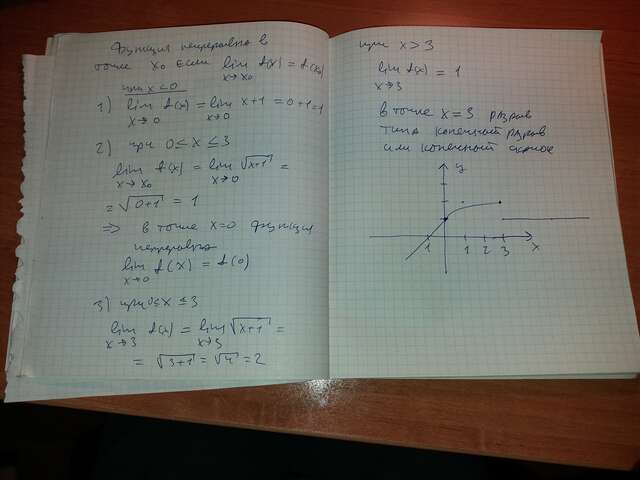 Функция непрерывна в
точке x₀ если lim f(x) = f(x₀)
x→x₀
при x<0
1) lim f(x) = lim x+1 = 0+1=1
x→0 x→0
2) при 0 ≤ x ≤ 3
lim f(x) = lim √x+1 =
x→x₀ x→0
= √0+1 = 1
⇒ в точке x=0 функция
непрерывна
lim f(x) = f(0)
x→0
3) при 0≤x≤3
lim f(x) = lim √x+1 =
x→3 x→3
= √3+1 = √4 = 2
при x>3
lim f(x) = 1
x→3
в точке x=3 разрыв
типа конечный разрыв
или конечный скачок
y
1
1 2 3 x